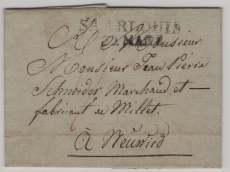 SARLOUIS
A Monsieur
Monsieur Jean Pierre
Schneider Marchand et
fabricant de Millet.
À Neuwied